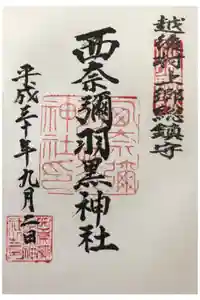 越後村上郷総鎮守
西奈彌羽黒神社
平成三十年九月二日